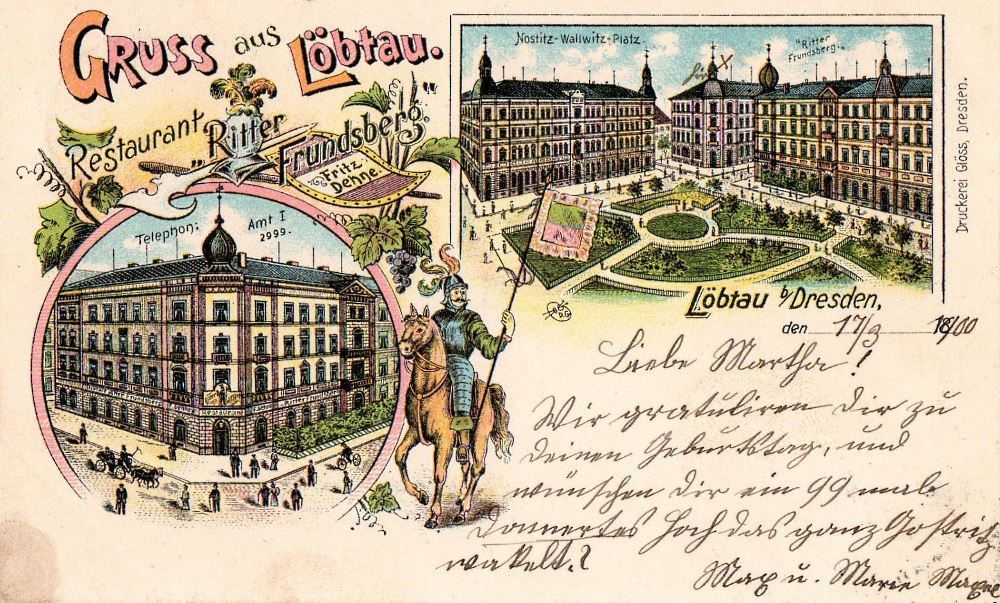 GRUSS aus Löbtau.
Restaurant "Ritter Frundsberg."
Fritz Dehne.
Telephon: Amt I 2999.
Nostitz-Wallwitz-Platz.
"Ritter Frundsberg."
hier X
Druckerei Glöss, Dresden.
Löbtau b/Dresden,
den 17/9 1800
Liebe Martha!
Wir gratuliren Dir zu
deinen Geburtstag, und
wünschen Dir ein 99 mal
donnertes Hoch das ganz Gostritz
wakelt.!
Max u. Marie